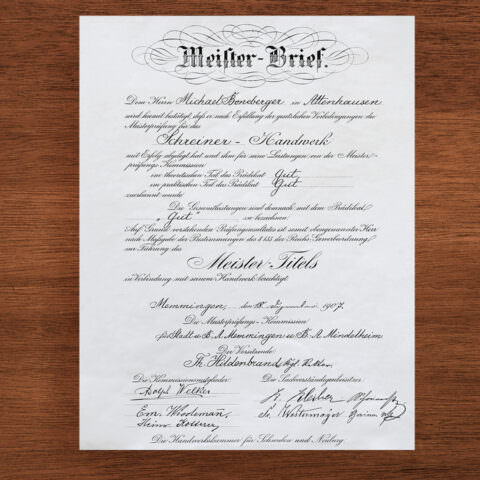 Meister-Brief.
Dem Herrn Michael Boneberger in Attenhausen
wird hiermit bestätigt, daß er nach Erfüllung der gesetzlichen Vorbedingungen die
Meisterprüfung für das
Schreiner - Handwerk
mit Erfolg abgelegt hat und ihm für seine Leistungen von der Meister-
prüfungs-Kommission
im theoretischen Teil das Prädikat Gut
im praktischen Teil das Prädikat Gut
zuerkannt wurde.
Die Gesamtleistungen sind demnach mit dem Prädikat
„Gut“ zu bezeichnen.
Auf Grund vorstehenden Prüfungsresultates ist somit obengenannter Herr
nach Maßgabe der Bestimmungen des § 133 der Reichs-Gewerbeordnung
zur Führung des
Meister-Titels
in Verbindung mit seinem Handwerk berechtigt.
Memmingen, den 18. Dezember 1907.
Die Meisterprüfungs-Kommission
für Stadt u. B. A. Memmingen u. B. A. Mindelheim
Der Vorsitzende
Th. Hildenbrand
Die Kommissionsmitglieder: Die Sachverständigenbeisitzer:
Adolf Welker
Em. Wiedemann,
Westermayer
Die Handwerkskammer für Schwaben und Neuburg